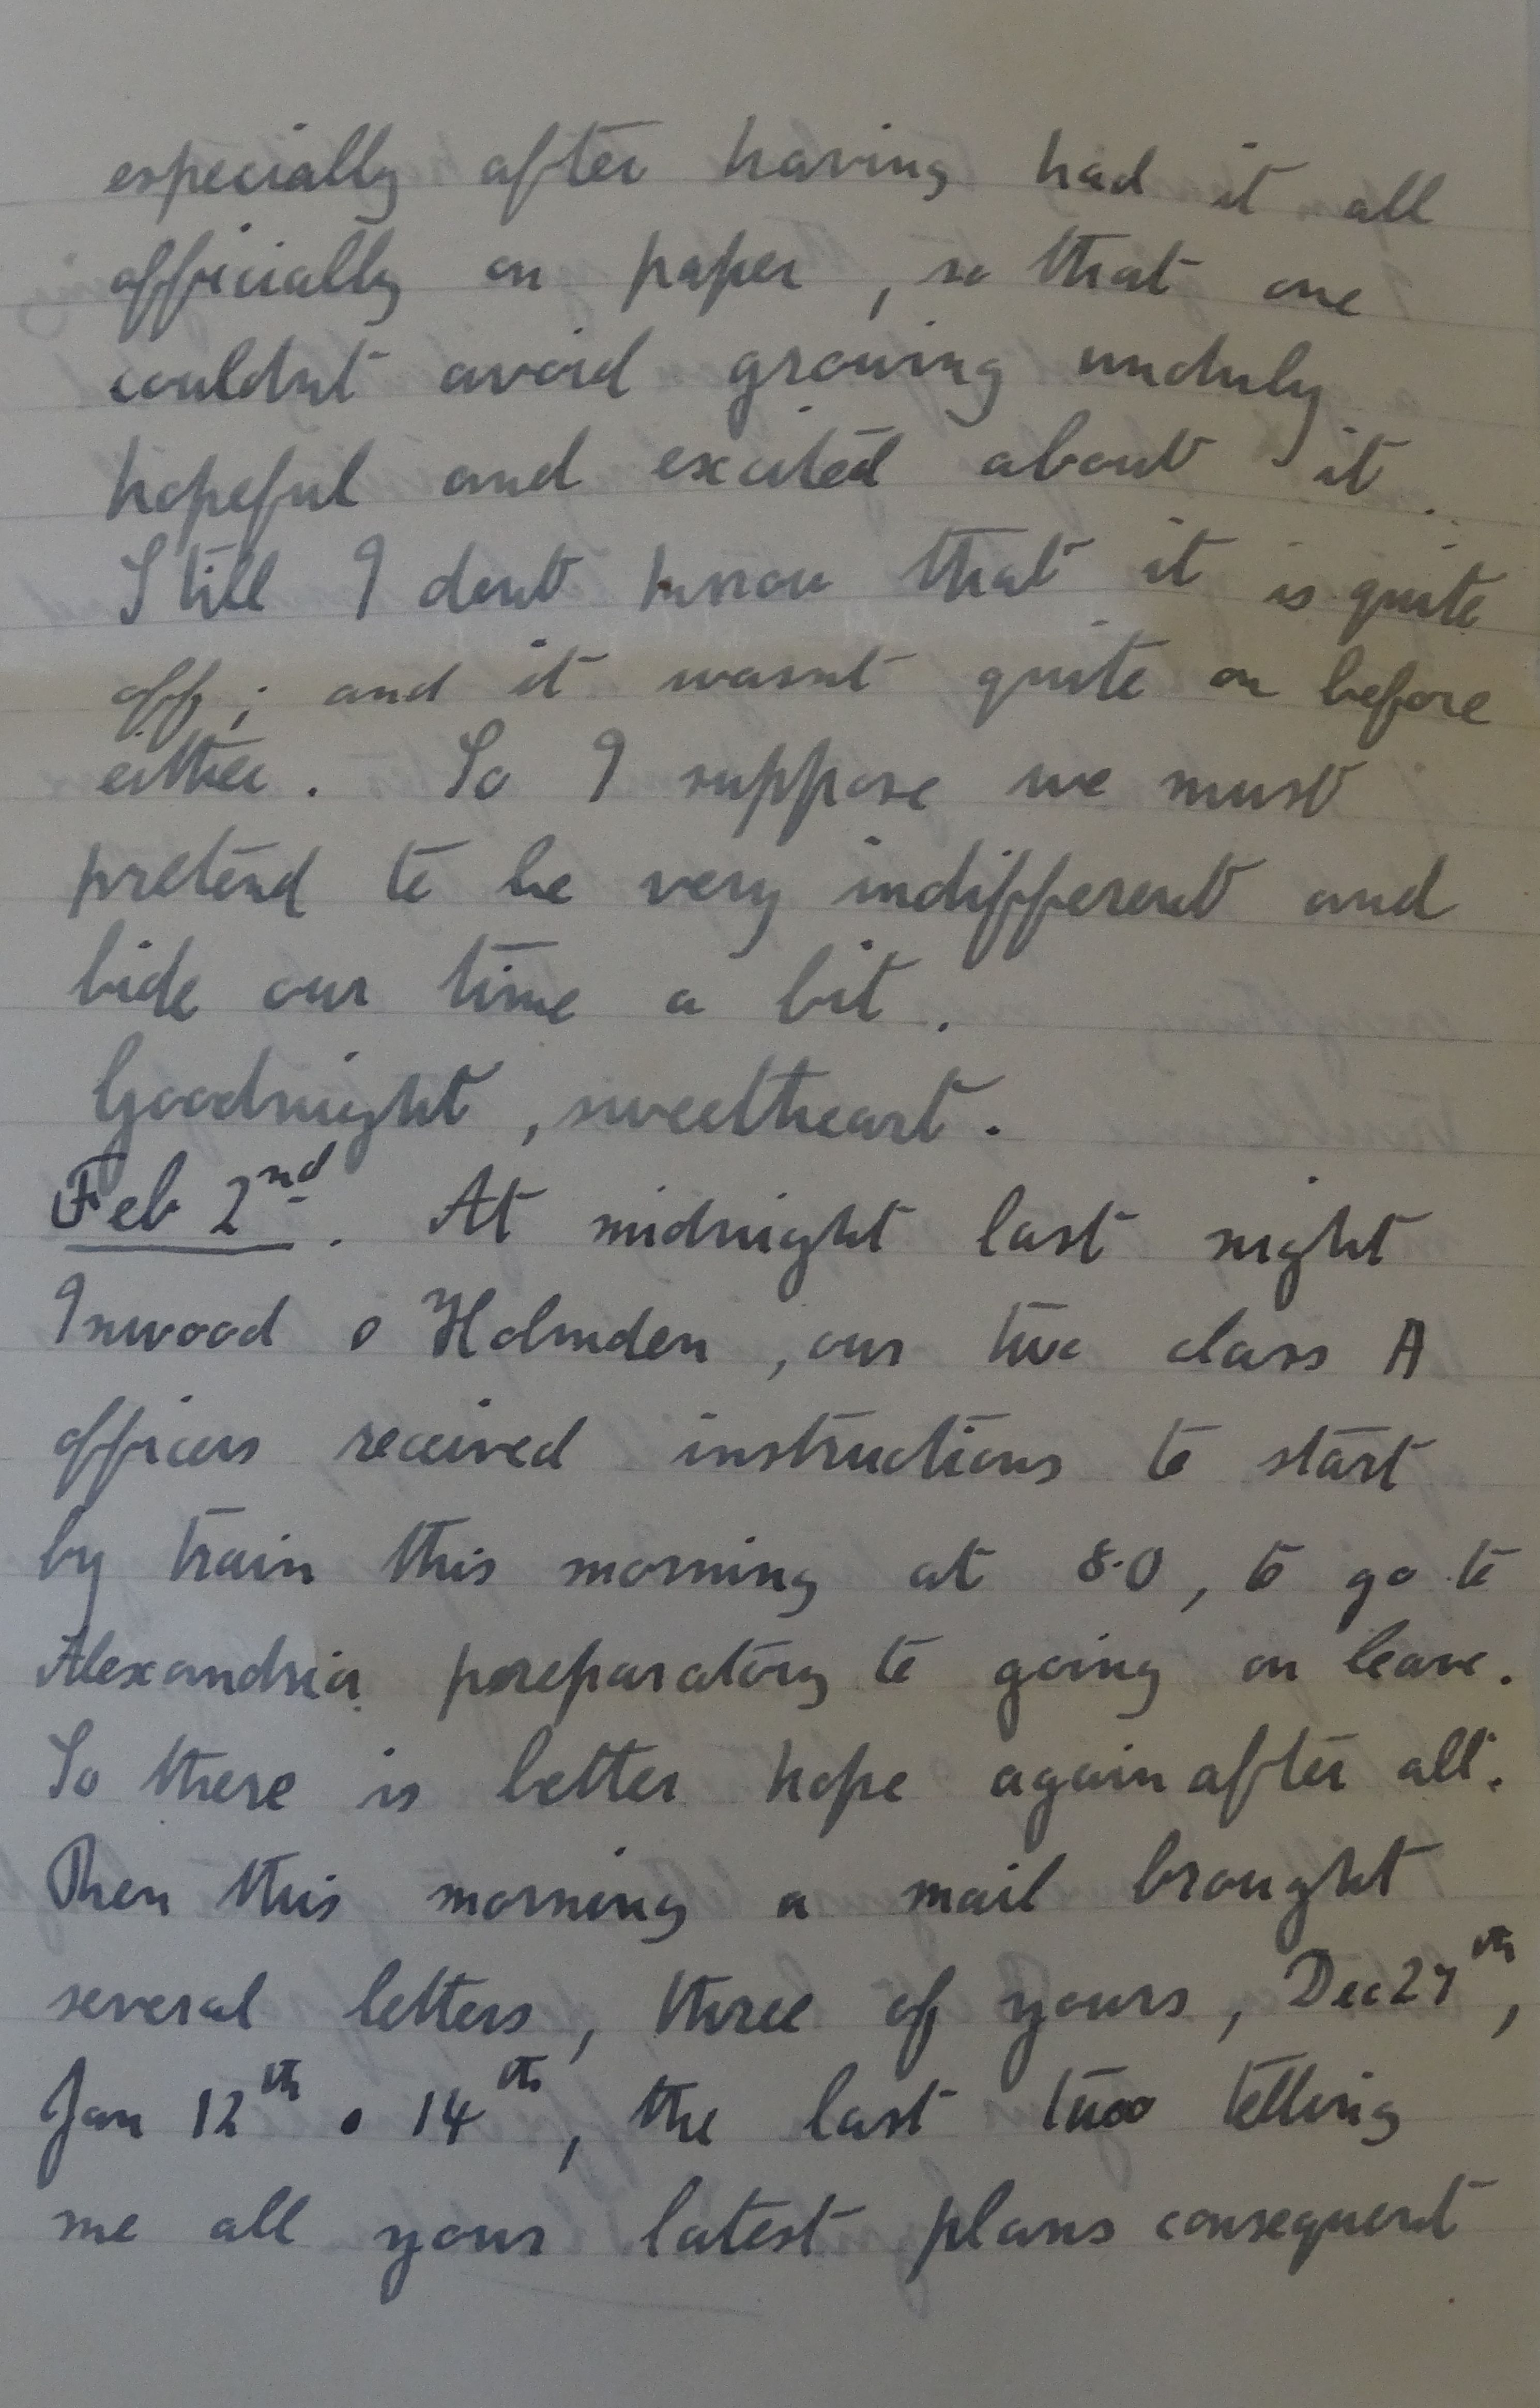 especially after having had it all
officially on paper, so that one
couldnt avoid growing unduly
hopeful and excited about it.
Still I dont know that it is quite
off; and it wasnt quite on before
either. So I suppose we must
pretend to be very indifferent and
bide our time a bit.
Goodnight, sweetheart.
Feb 2nd. At midnight last night
Inwood & Holmden, our two class A
officers received instructions to start
by train this morning at 8.0, to go to
Alexandria preparatory to going on leave.
So there is better hope again after all.
Then this morning a mail brought
several letters, three of yours, Dec 27th,
Jan 12th & 14th, the last two telling
me all your latest plans consequent